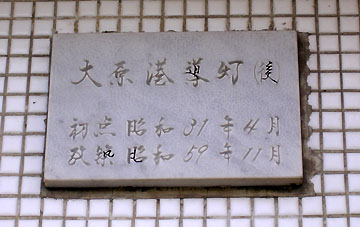 大原港導灯(後)
初点昭和31年4月
改築昭和59年11月